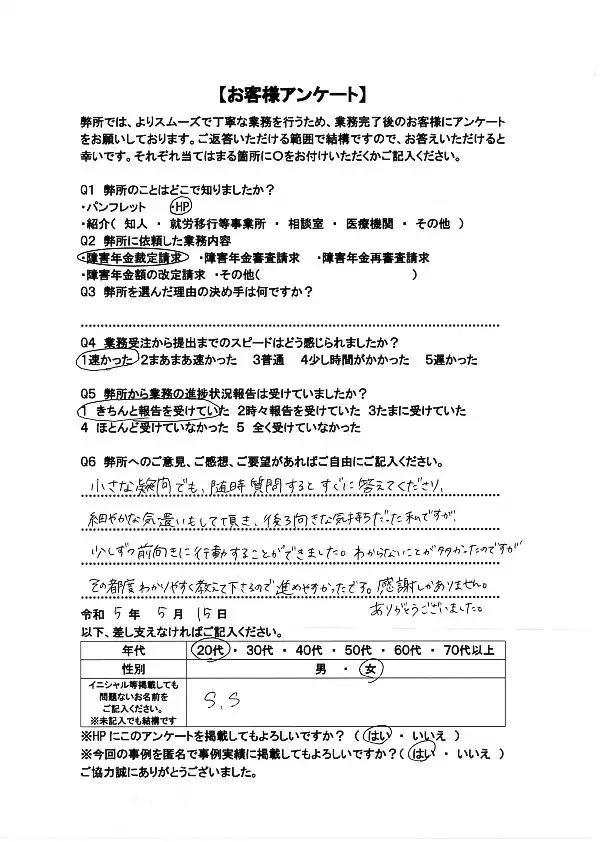 【お客様アンケート】
弊所では、よりスムーズで丁寧な業務を行うため、業務完了後のお客様にアンケート
をお願いしております。ご返答いただける範囲で結構ですので、お答えいただけると
幸いです。それぞれ当てはまる箇所に〇をお付けいただくかご記入ください。
Q1 弊所のことはどこで知りましたか？
・パンフレット ・HP
・紹介（ 知人 ・ 就労移行等事業所 ・ 相談室 ・ 医療機関 ・ その他 ）
Q2 弊所に依頼した業務内容
・障害年金裁定請求 ・障害年金審査請求 ・障害年金再審査請求
・障害年金額の改定請求 ・その他（ ）
Q3 弊所を選んだ理由の決め手は何ですか？
Q4 業務受注から提出までのスピードはどう感じられましたか？
1速かった 2まあまあ速かった 3普通 4少し時間がかかった 5遅かった
Q5 弊所から業務の進捗状況報告は受けていましたか？
1 きちんと報告を受けていた 2時々報告を受けていた 3たまに受けていた
4 ほとんど受けていなかった 5 全く受けていなかった
Q6 弊所へのご意見、ご感想、ご要望があればご自由にご記入ください。
小さな疑問でも、随時質問するとすぐに答えてくださり、
細やかな気遣いもして頂き、後ろ向きな気持ちだった私ですが、
少しずつ前向きに行動することができました。わからないことが多かったのですが
その都度わかりやすく教えて下さるので進めやすかったです。感謝しかありません。
ありがとうございました。
令和 5 年 5 月 15 日
以下、差し支えなければご記入ください。
年代 20代 ・ 30代 ・ 40代 ・ 50代 ・ 60代 ・ 70代以上
性別 男 ・ 女
イニシャル等掲載しても
問題ないお名前を
ご記入ください。
※未記入でも結構です
S.S
※HPにこのアンケートを掲載してもよろしいですか？ （ はい ・ いいえ ）
※今回の事例を匿名で事例実績に掲載してもよろしいですか？（ はい ・ いいえ ）
ご協力誠にありがとうございました。